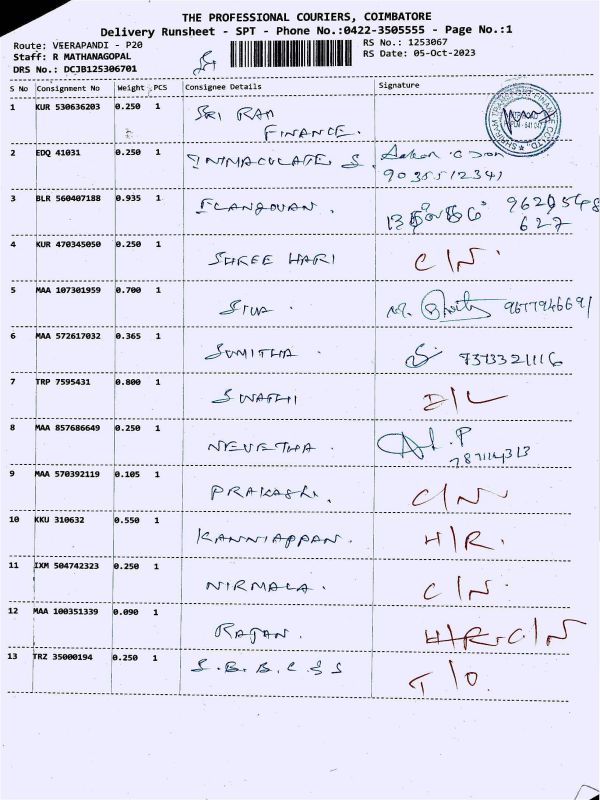 THE PROFESSIONAL COURIERS, COIMBATORE
Delivery Runsheet - SPT - Phone No.:0422-3505555 - Page No.:1
Route: VEERAPANDI - P20
RS No.: 1253067
Staff: R MATHANAGOPAL
RS Date: 05-Oct-2023
DRS No.: DCJB125306701
S No Consignment No Weight PCS Consignee Details Signature
1 KUR 530636203 0.250 1 SRI RAM
FINANCE.
2 EDQ 41031 0.250 1 INIMACULATE S.
9035512341
3 BLR 560407188 0.935 1 ELANGOVAN.
627
4 KUR 470345050 0.250 1 SHREE HARI C/N.
5 MAA 107301959 0.700 1 SIVA. 9677946691
6 MAA 572617032 0.365 1 SUMITHA. 7373321116
7 TRP 7595431 0.800 1 SWATHI D/L
8 MAA 857686649 0.250 1 NIVETHA.
9 MAA 570392119 0.105 1 PRAKASH. C/N
10 KKU 310632 0.550 1 KANNIAPPAN. H/R.
11 IXM 504742323 0.250 1 NIRMALA. C/N.
12 MAA 100351339 0.090 1 RAJAN. H/R. C/N
13 TRZ 35000194 0.250 1 T/O.